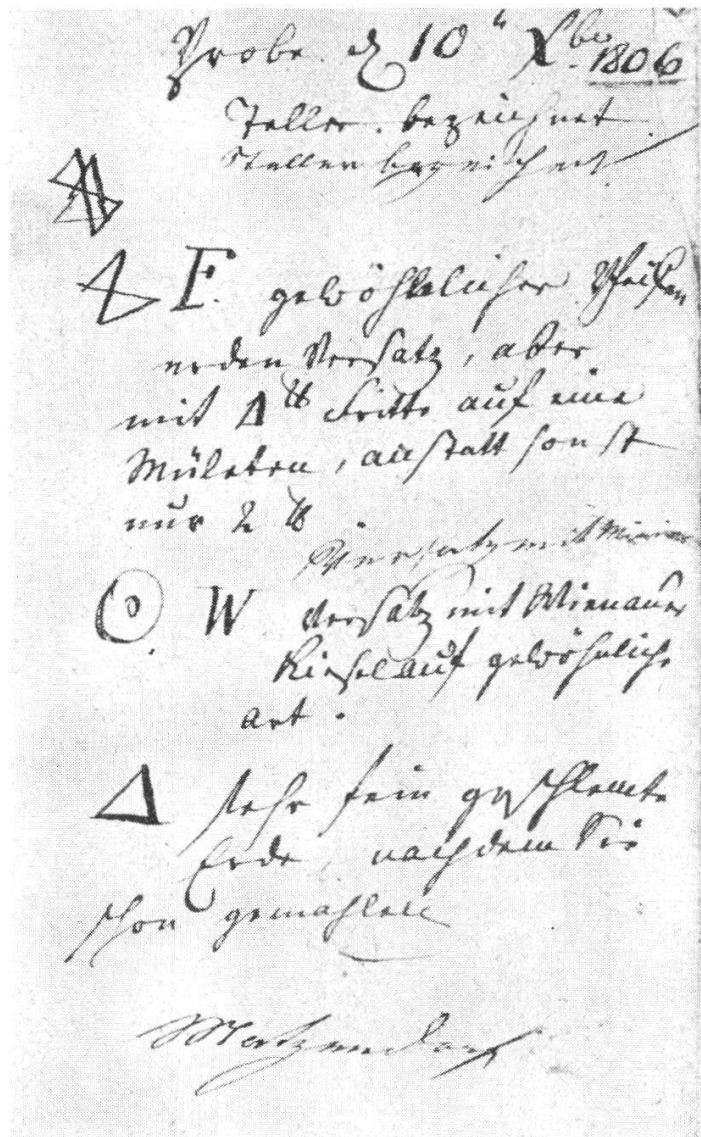 Probe d 10 t Xber 1806
Teller. bezeichnet
Teller bezeichnet
F. gewöhnlicher Pfeifen
erden Versatz, aber
mit 4 ℔ Fritte auf eine
Mületen, anstatt sonst
nur 2 ℔
Versatz mit
W Versatz mit Wienauer
Kiesel auf gewöhnliche
art.
sehr fein geschlemte
Erde, nachdem Sie
schon gemahlen
Matzendorf